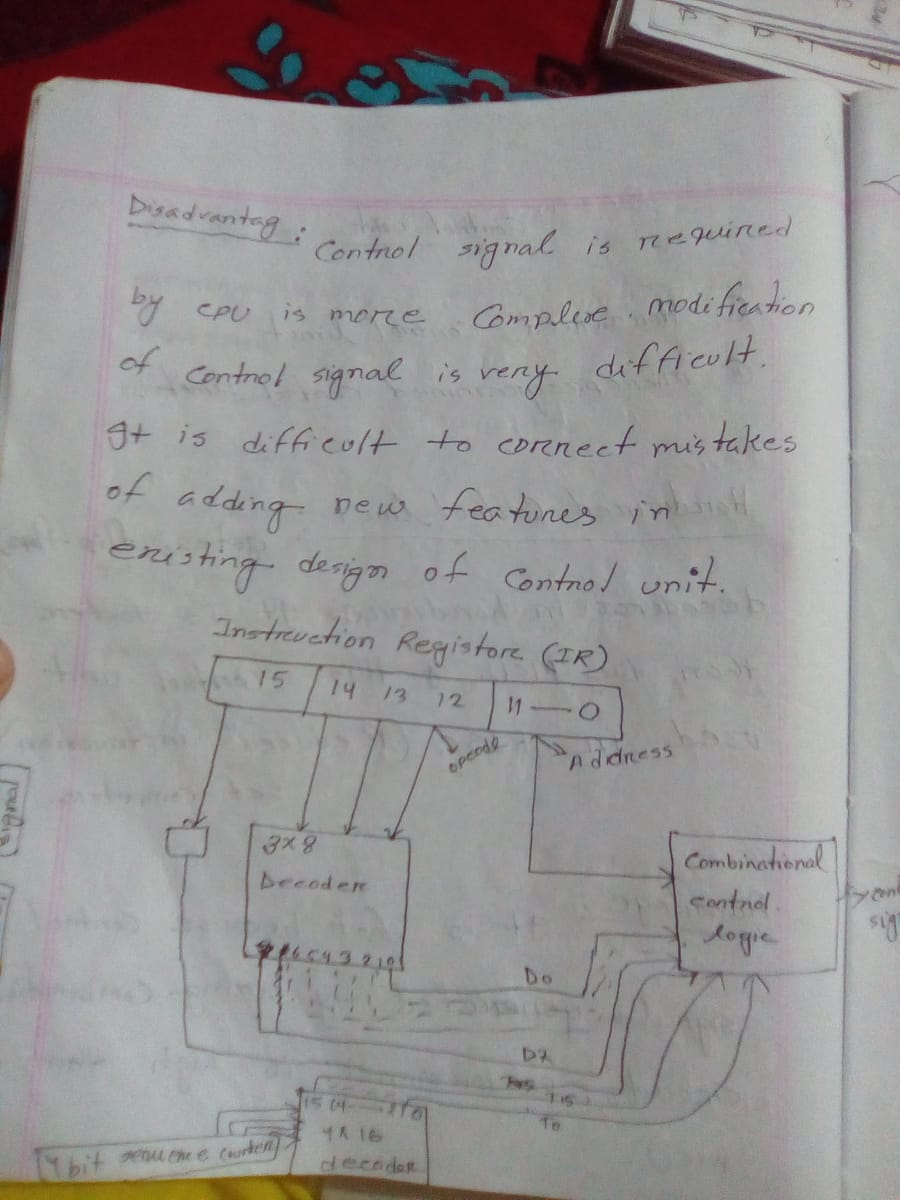 Disadvantag :
Control signal is required
by CPU is more Complexe. modification
of Control signal is very difficult.
It is difficult to correct mistakes
of adding new features in
existing design of Control unit.
Instruction Registore (IR)
15 14 13 12 11 — 0
opcode
Address
3×8
Decoder
Combinational
control.
logic
cont
sig
7 6 5 4 3 2 1 0
D0
D7
T15
T0
15 14 --- 2 1 0
4 x 16
decoder
4 bit sequence counter